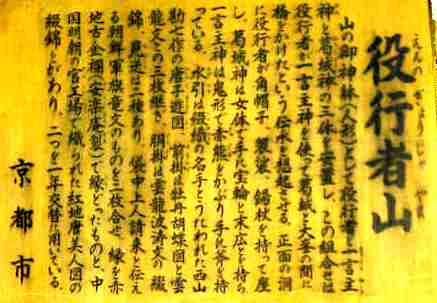 役行者山
えんのぎょうじゃやま
山の御神体(人形)として役行者と一言主
神と葛城神の三体を安置し、この組合せは
役行者が一言主神を使って葛城と大峯の間に
橋をかけたという伝承を想起させる。正面の洞
に役行者が角帽子、袈裟、錫杖を持って座
し、葛城神は女体で手に宝輪と末広を持ち
一言主神は鬼形で赤熊をかぶり手に斧を持
っている。水引は綴織の名手とうたわれた西山
勘七作の唐子遊図、前掛は牡丹胡蝶図と雲
龍文の三枚継ぎ、胴掛は雲龍波濤文の綴
錦、見送は二種あり、袋中上人請来と伝え
る朝鮮軍旗竜文のものを二枚合せ、縁を赤
地古金襴(安楽庵裂)で縁どったものと、中
国明朝の宮工場で織られた紅地唐美人図の
綴錦とがあり、二つを一年交替で用いている。
京都市